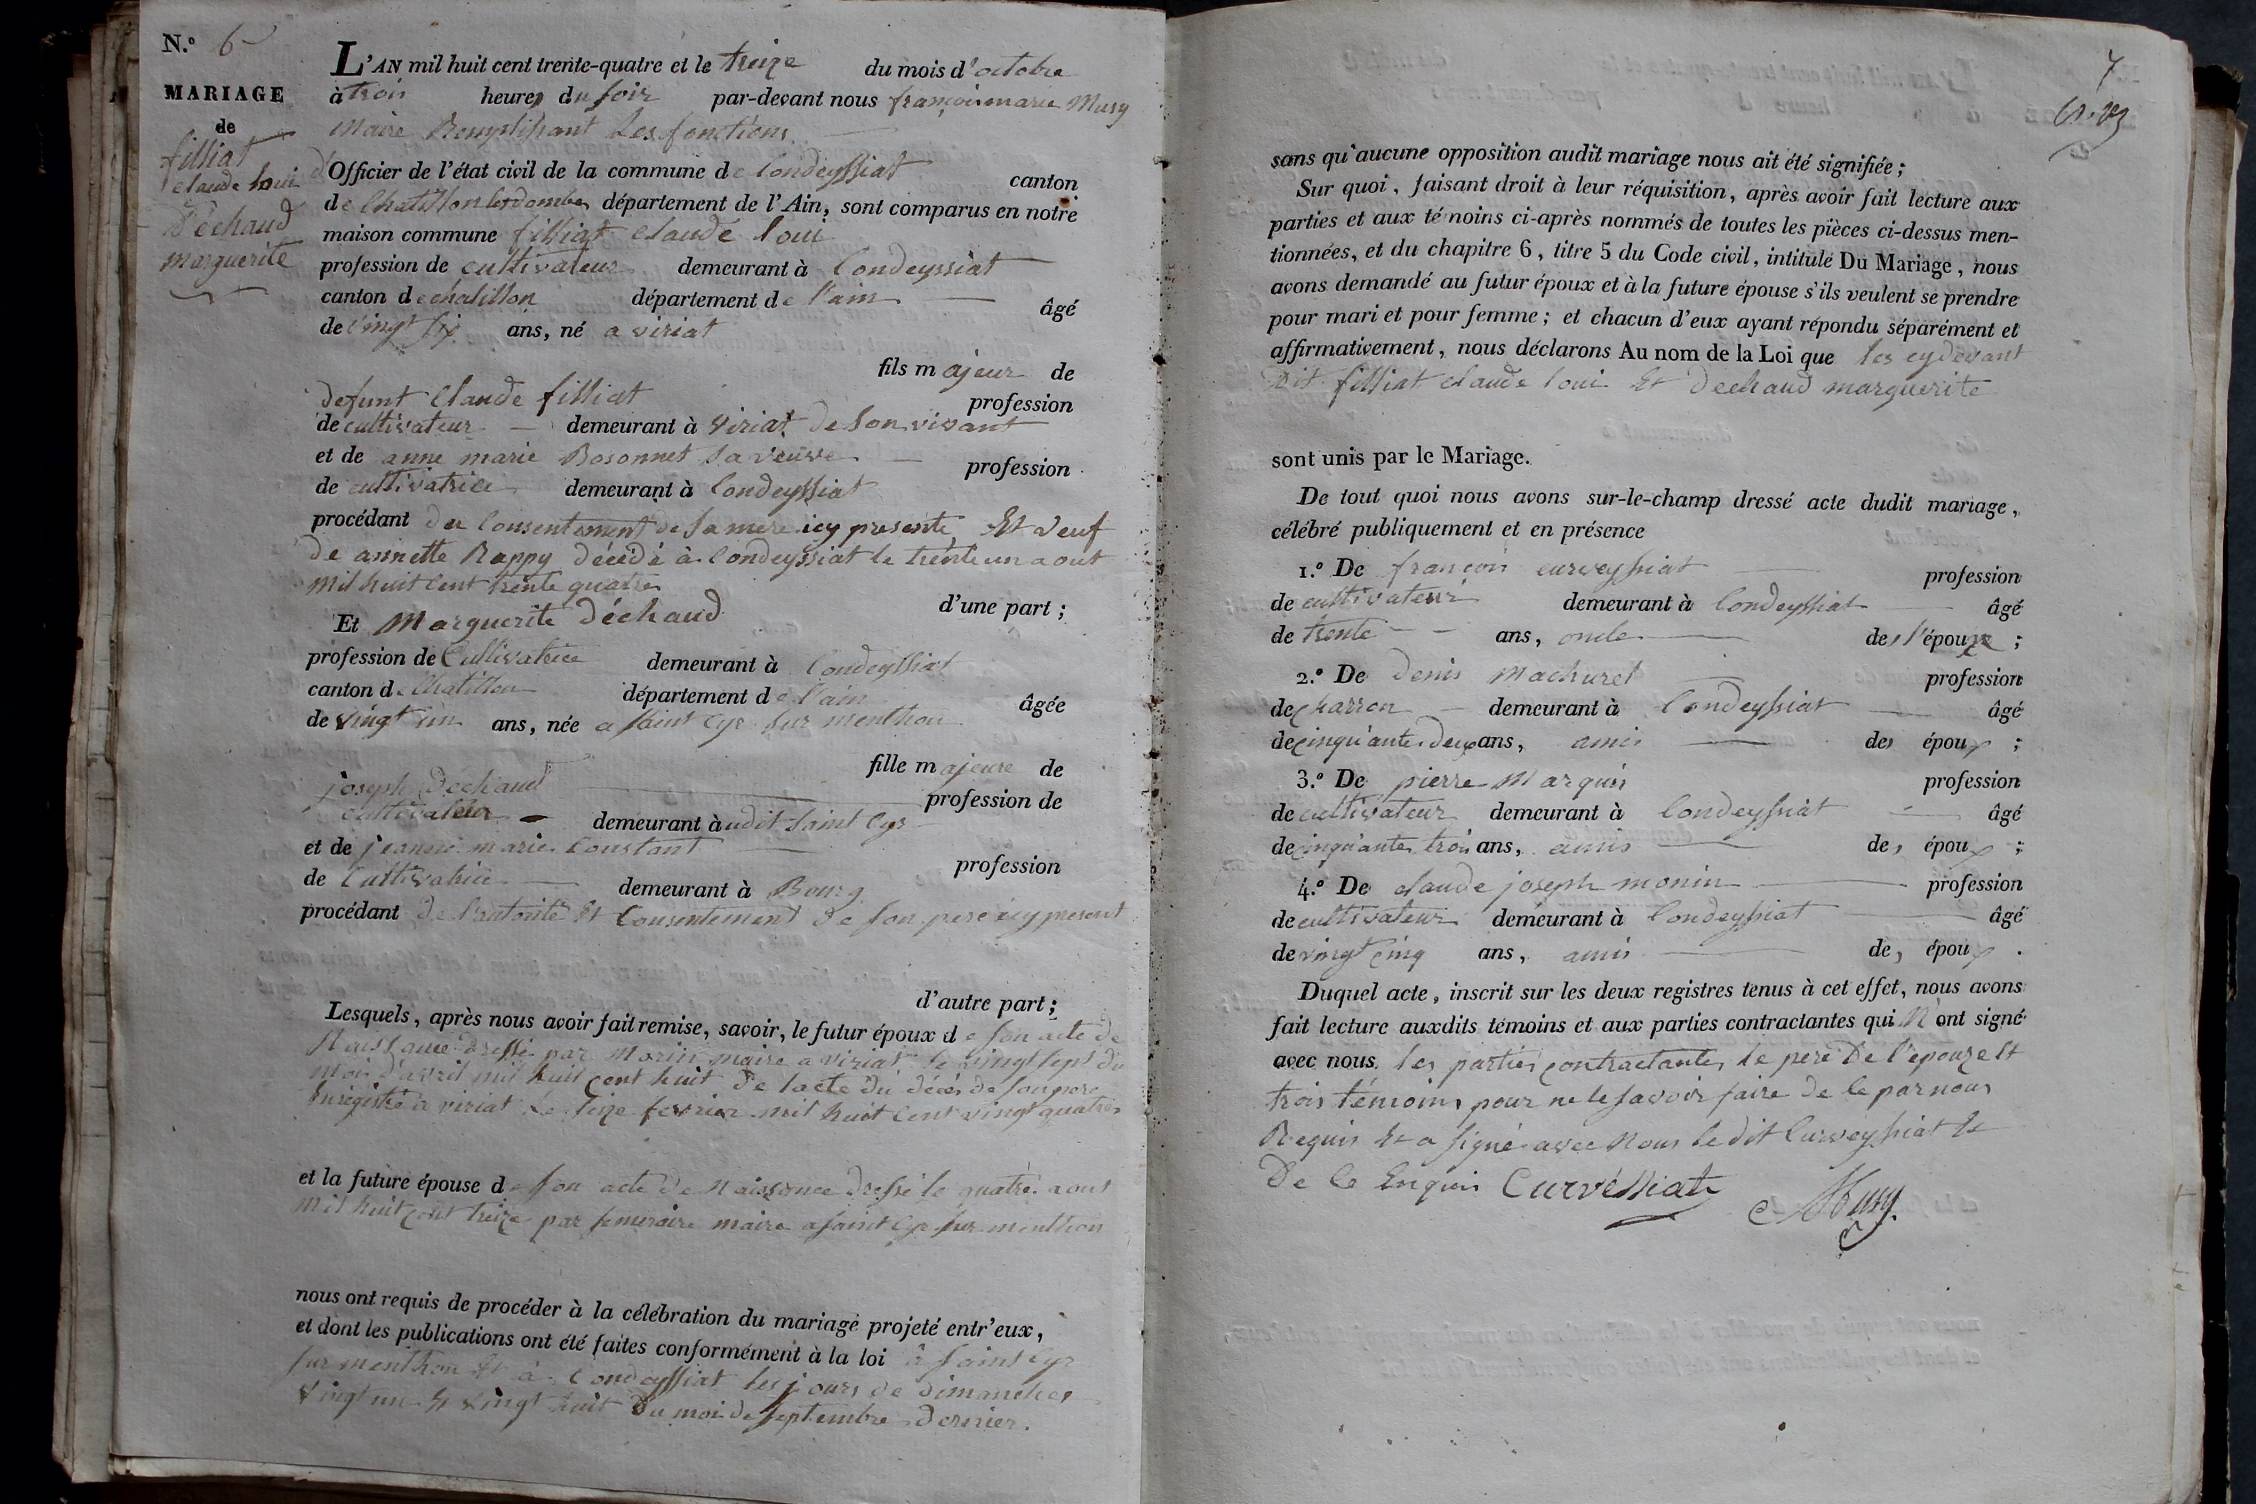 N.º 6
MARIAGE
de
filliat
claude loui
&
Déchaud
marguerite
L'AN mil huit cent trente-quatre et le treize du mois d'octobre
à trois heures du soir par-devant nous françois marie Musy
maire Remplissant les fonctions
d'Officier de l'état civil de la commune de Condeyssiat canton
de Chatillon les dombes département de l'Ain, sont comparus en notre
maison commune filliat claude loui
profession de cultivateur demeurant à Condeyssiat
canton de chatillon département de l'ain âgé
de vingt six ans, né a viriat
fils majeur de
defunt Claude filliat profession
de cultivateur demeurant à Viriat de son vivant
et de anne marie Bosonnet sa veuve profession
de cultivatrice demeurant à Condeyssiat
procédant du Consentement de sa mere icy presente Et veuf
de annette Rappy décédé à Condeyssiat le trente un aout
mil huit cent trente quatre
d'une part ;
Et Marguerite Déchaud
profession de Cultivatrice demeurant à Condeyssiat
canton de Chatillon département de l'ain âgée
de vingt un ans, née a saint Cyr sur menthon
fille majeure de
joseph Dechaud profession de
cultivateur demeurant audit saint Cyr
et de jeanne marie Constant profession
de Cultivatrice demeurant à Bourg
procédant de l'autorité Et Consentement de son pere icy present
d'autre part ;
Lesquels, après nous avoir fait remise, savoir, le futur époux de son acte de
Naissance dressé par Morin maire a viriat le vingt sept du
mois d'avril mil huit cent huit De lacte du décés de son pere
Enregistré a viriat Le seize fevrier mil huit cent vingt quatre
et la future épouse de son acte de Naissance dressé le quatre aout
mil huit cent treize par maire a saint Cyr sur menthon
nous ont requis de procéder à la célébration du mariage projeté entr'eux,
et dont les publications ont été faites conformément à la loi à saint Cyr
sur menthon Et à Condeyssiat les jours de dimanches
vingt un Et vingt huit Du moi de septembre dernier.
7
sans qu'aucune opposition audit mariage nous ait été signifiée ;
Sur quoi, faisant droit à leur réquisition, après avoir fait lecture aux
parties et aux témoins ci-après nommés de toutes les pièces ci-dessus men-
tionnées, et du chapitre 6, titre 5 du Code civil, intitulé Du Mariage, nous
avons demandé au futur époux et à la future épouse s'ils veulent se prendre
pour mari et pour femme ; et chacun d'eux ayant répondu séparément et
affirmativement, nous déclarons Au nom de la Loi que les cydevant
dit filliat claude loui Et Dechaud marguerite
sont unis par le Mariage.
De tout quoi nous avons sur-le-champ dressé acte dudit mariage,
célébré publiquement et en présence
1.º De françois curveyssiat profession
de cultivateur demeurant à Condeyssiat âgé
de trente ans, oncle de l'épouze ;
2.º De denis Machuret profession
de charron demeurant à Condeyssiat âgé
de cinquante deux ans, amis des époux ;
3.º De pierre Marquis profession
de cultivateur demeurant à Condeyssiat âgé
de cinquante trois ans, amis des époux ;
4.º De claude joseph monin profession
de cultivateur demeurant à Condeyssiat âgé
de vingt cinq ans, amis des époux .
Duquel acte, inscrit sur les deux registres tenus à cet effet, nous avons
fait lecture auxdits témoins et aux parties contractantes qui N'ont signé
avec nous. les parties contractantes le pere De l'epouze Et
trois témoins pour ne le savoir faire de ce par nous
Requis Et a signé avec Nous le dit Curveyssiat Et
De ce Enquis Curvéssiat Musy